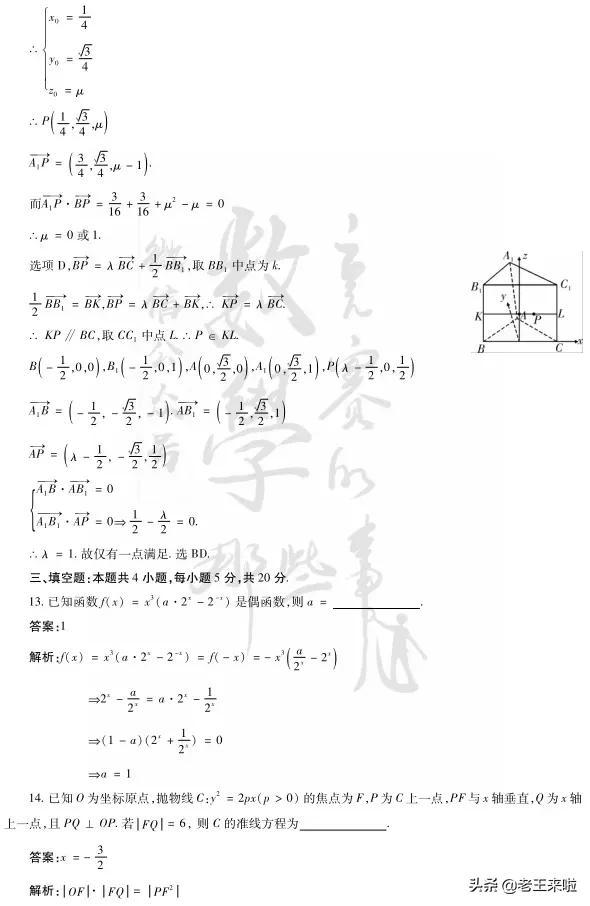 ∴ { x₀ = 1/4
y₀ = √3/4
z₀ = μ
∴ P(1/4, √3/4, μ)
A₁P→ = (3/4, √3/4, μ − 1).
而A₁P→ · BP→ = 3/16 + 3/16 + μ² − μ = 0
∴ μ = 0 或 1.
选项 D, BP→ = λ BC→ + 1/2 BB₁→, 取 BB₁ 中点为 k.
1/2 BB₁→ = BK→, BP→ = λ BC→ + BK→, ∴ KP→ = λ BC→.
∴ KP ∥ BC, 取 CC₁ 中点 L. ∴ P ∈ KL.
B(−1/2, 0, 0), B₁(−1/2, 0, 1), A(0, √3/2, 0), A₁(0, √3/2, 1), P(λ − 1/2, 0, 1/2)
A₁B→ = (−1/2, −√3/2, −1). AB₁→ = (−1/2, √3/2, 1)
AP→ = (λ − 1/2, −√3/2, 1/2)
{ A₁B→ · AB₁→ = 0
A₁B₁→ · AP→ = 0 ⇒ 1/2 − λ/2 = 0.
∴ λ = 1. 故仅有一点满足. 选 BD.
A₁ z
B₁ C₁
y
K A P L
B C x
三、填空题:本题共 4 小题,每小题 5 分,共 20 分.
13. 已知函数 f(x) = x³(a · 2ˣ − 2⁻ˣ) 是偶函数,则 a = ________.
答案:1
解析: f(x) = x³(a · 2ˣ − 2⁻ˣ) = f(−x) = −x³(a/2ˣ − 2ˣ)
⇒2ˣ − a/2ˣ = a · 2ˣ − 1/2ˣ
⇒(1 − a)(2ˣ + 1/2ˣ) = 0
⇒a = 1
14. 已知 O 为坐标原点,抛物线 C: y² = 2px(p > 0) 的焦点为 F, P 为 C 上一点, PF 与 x 轴垂直, Q 为 x 轴
上一点,且 PQ ⊥ OP. 若|FQ| = 6, 则 C 的准线方程为________.
答案: x = −3/2
解析: |OF| · |FQ| = |PF²|
数学竞赛的那些事儿
头条 @老王来啦